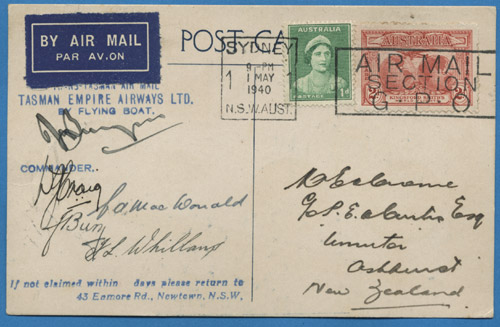 BY AIR MAIL
PAR AVION
POST CA
TRANS-TASMAN AIR MAIL
TASMAN EMPIRE AIRWAYS LTD.
BY FLYING BOAT.
COMMANDER.
SYDNEY
9 - PM
1 1 MAY 1
1940
N.S.W.AUST.
AUSTRALIA
POSTAGE 1d
AUSTRALIA
KINGSFORD SMITH
AIR MAIL
SECTION
G.P.O
Craig
MacDonald
Burn
Whilland
Esq
Ashhurst
New Zealand
If not claimed within days please return to
43 Enmore Rd., Newtown, N.S.W.